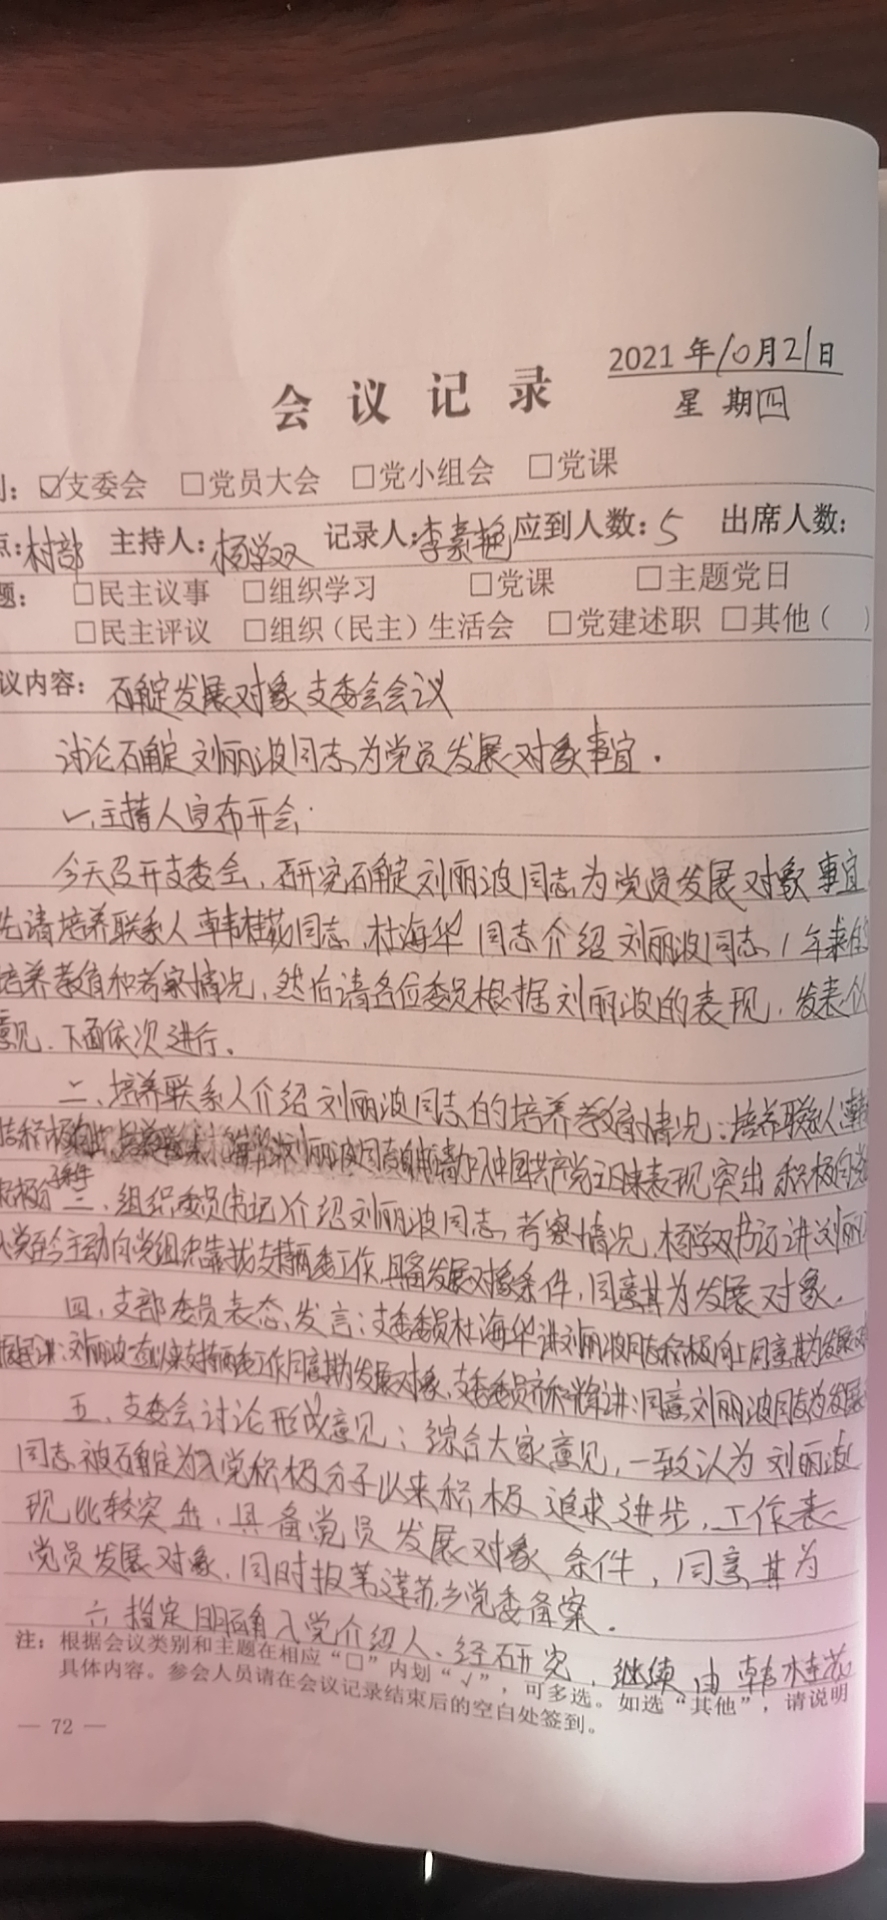 2021年10月21日
会议记录
星期四
支委会 □党员大会 □党小组会 □党课
村部 主持人:杨学双 记录人:李素艳 应到人数:5 出席人数:
□民主议事 □组织学习 □党课 □主题党日
□民主评议 □组织(民主)生活会 □党建述职 □其他( )
议内容: 确定发展对象支委会会议
讨论确定刘丽波同志为党员发展对象事宜.
一、主持人宣布开会:
今天召开支委会,研究确定刘丽波同志为党员发展对象事宜
先请培养联系人韩桂花同志,杜海华同志介绍刘丽波同志1年来
培养教育和考察情况,然后请各位委员根据刘丽波的表现,发表个
意见.下面依次进行。
二、培养联系人介绍刘丽波同志的培养教育情况:培养联系人韩
刘丽波同志自申请加入中国共产党至今以来表现突出 积极向党
三、组织委员(书记)介绍刘丽波同志考察情况,杨学双书记讲刘丽
入党至今主动向党组织靠拢支持两委工作,具备发展对象条件,同意其为发展对象。
四、支部委员表态发言:支委委员杜海华讲刘丽波同志积极向上同意其为发展
讲:刘丽波一直以来支持两委工作同意其为发展对象,支委委员讲:同意刘丽波同志为发展
五、支委会讨论形成意见:综合大家意见,一致认为刘丽波
同志被确定为入党积极分子以来积极追求进步,工作表
现比较突出,具备党员发展对象条件,同意其为
党员发展对象,同时报党委备案.
六 指定明确入党介绍人、经研究,继续由韩桂花
注:根据会议类别和主题在相应“□”内划“√”,可多选。如选“其他”,请说明
具体内容。参会人员请在会议记录结束后的空白处签到。
— 72 —